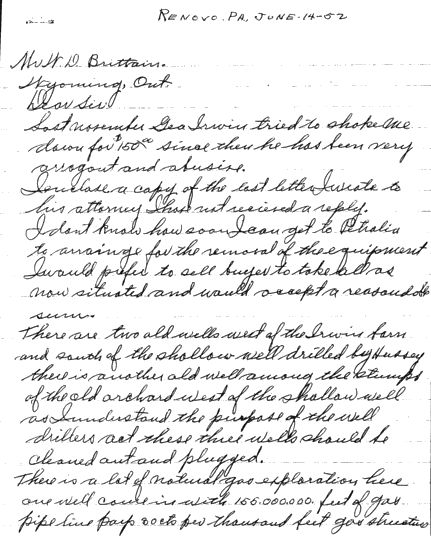 RENOVO. PA, JUNE-14-52
Mr W. D. Brittain.
Wyoming, Ont.
Dear Sir
Last november Geo Irwin tried to shake me
down for $150.00 since then he has been very
arrogant and abusive.
I enclose a copy of the last letter I wrote to
his attorney I have not recieved a reply.
I dont know how soon I can get to Petrolia
to arrainge for the removal of the equipment
I would prefer to sell buyer to take all as
now situated and would accept a reasonable
sum.
There are two old wells west of the Irwin barn
and south of the shallow well drilled by Hussey
there is another old well among the stumps
of the old orchard west of the shallow well
as I understand the purpose of the well
drillers act these three wells should be
cleaned out and plugged.
There is a lot of natural gas exploration here
one well come in with 155.000.000. feet of gas
pipe line pays 30 cts per thousand feet gas structure